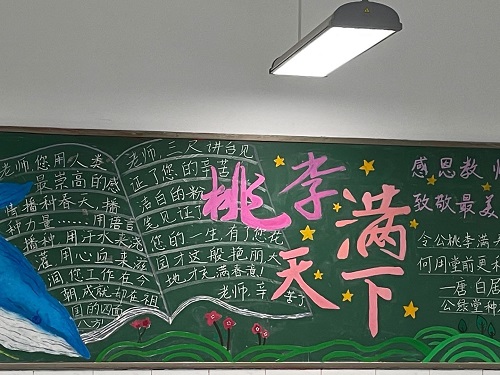 老师您用人类
最崇高的感
情播种春天,播
种力量……用语言
播种,用汗水来浇
灌用心血来滋
润您工作在今
朝成就却在祖
国的四面
八方
老师三尺讲台见
证了您的辛苦
洁白的粉
笔见证了
您的一生有了您花
园才这般艳丽大
地才充满春意!
老师,辛
苦了
桃李
满
天下
感恩教师
致敬最美
令公桃李满
何用堂前更
—唐 白居